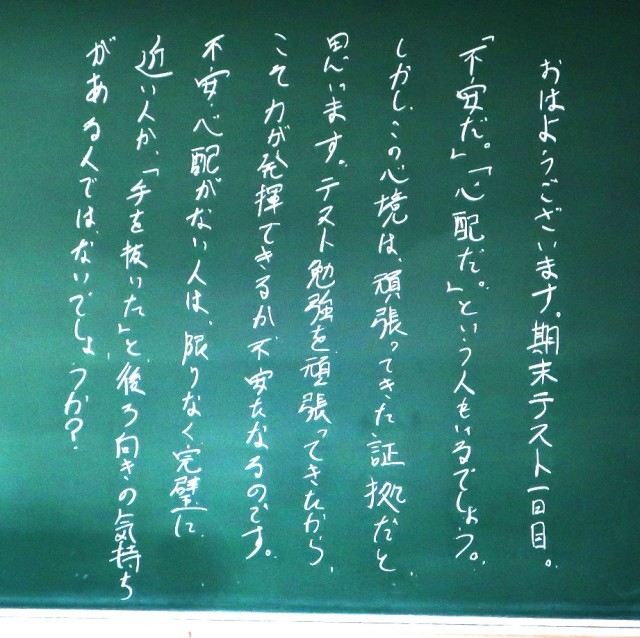 おはようございます。期末テスト一日目。
「不安だ。」「心配だ。」という人もいるでしょう。
しかし、この心境は、頑張ってきた証拠だと
思います。テスト勉強を頑張ってきたから
こそ力が発揮できるか不安になるのです。
不安・心配がない人は、限りなく完璧に
近い人か、「手を抜いた」と後ろ向きの気持ち
がある人ではないでしょうか?